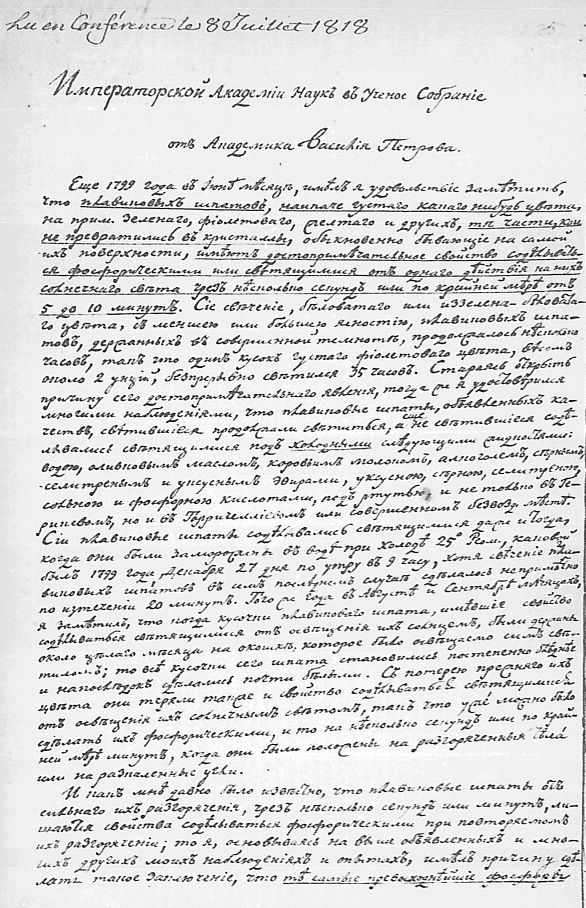 Lu en Conférence le 8 Juillet 1818
Императорской Академіи Наукъ въ Ученое Собраніе
отъ Академика Василія Петрова.
Еще 1799 года въ Іюнѣ мѣсяцѣ, имѣлъ я удовольствіе замѣтить,
что плавиковыхъ шпатовъ, наипаче густаго какаго нибудь цвѣта,
на прим. зеленаго, фіолетоваго, желтаго и другихъ, тѣ части, кои
не превратились въ кристаллы, обыкновенно бывающіе на самой
ихъ поверхности, имѣютъ достопримѣчательное свойство содѣлывать-
ся фосфорическими или свѣтящимися отъ однаго дѣйствія на нихъ
солнечнаго свѣта чрезъ нѣсколько секундъ или по крайней мѣрѣ отъ
5 до 10 минутъ. Сіе свѣченіе, бѣловатаго или иззелена-бѣловата-
го цвѣта, съ меншею или большею ясностію, плавиковыхъ шпа-
товъ, держанныхъ въ совершенной темнотѣ, продолжалось нѣсколько
часовъ, такъ что одинъ кусокъ густаго фіолетоваго цвѣта, вѣсомъ
около 2 унцій, безпрерывно свѣтился 35 часовъ. Стараясь открыть
причину сего достопримѣчательнаго явленія, тогда же я удостовѣрился
многими наблюденіями, что плавиковые шпаты, объявленныхъ ка-
чествъ, свѣтившіеся продолжали свѣтиться, а не свѣтившіеся еще содѣ-
лывались свѣтящимися подъ холодными слѣдующими жидкостями:
водою, оливковымъ масломъ, коровьимъ молокомъ, алкоголемъ, сѣрнымъ,
селитренымъ и уксуснымъ эѳирами, уксусною, сѣрною, селитреною,
соляною и фосфорною кислотами, подъ ртутью и не только въ Ге-
риковомъ, но и въ Торричелліевомъ или совершенномъ безвозд. мѣстѣ.
Сіи плавиковые шпаты содѣлывались свѣтящимися даже и тогда,
когда они были заморожены въ водѣ при холодѣ 25° Реом., каковой
былъ 1799 года, Декабря 27 дня по утру въ 9 часу, хотя свѣченіе пла-
виковыхъ шпатовъ въ семъ послѣднемъ случаѣ сдѣлалось непримѣтно
по истеченіи 20 минутъ. Того же года въ Августѣ и Сентябрѣ мѣсяцахъ,
я замѣтилъ, что когда кусочки плавиковаго шпата, имѣвшіе свойство
содѣлываться свѣтящимися отъ освѣщенія ихъ солнцемъ, были держаны
около цѣлаго мѣсяца на окошкѣ, которое было освѣщаемо симъ свѣ-
тиломъ; то всѣ кусочки сего шпата становились постепенно блѣднѣе
и напослѣдокъ сдѣлались почти бѣлыми. Съ потерею прежняго ихъ
цвѣта они теряли также и свойство содѣлываться свѣтящимися
отъ освѣщенія ихъ солнечнымъ свѣтомъ, такъ что уже можно было
сдѣлать ихъ фосфорическими, и то на нѣсколько секундъ или по край-
ней мѣрѣ минутъ, когда они были положены на разгоряченныя тѣла
или на распаленные угли.
И какъ мнѣ давно было извѣстно, что плавиковые шпаты отъ
сильнаго ихъ разгоряченія, чрезъ нѣсколько секундъ или минутъ, ли-
шаются свойства содѣлываться фосфорическими при повторяемомъ
ихъ разгоряченіи; то я, основываясь на выше объявленныхъ и мно-
гихъ другихъ моихъ наблюденіяхъ и опытахъ, имѣлъ причину сдѣ-
лать такое заключеніе, что тѣ самые превосходнѣйшіе фосфоры